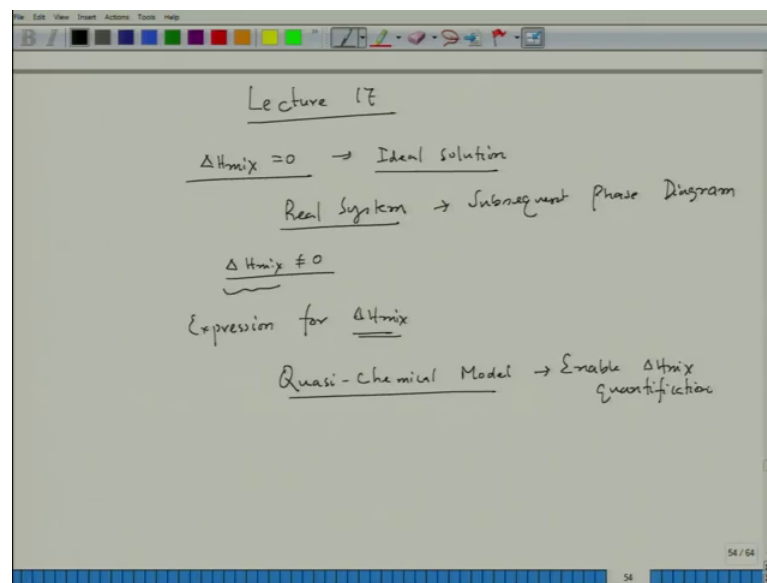 File Edit View Insert Actions Tools Help
B I
Lecture 17
ΔHmix =0 → Ideal solution
Real System → Subsequent Phase Diagram
ΔHmix ≠ 0
Expression for ΔHmix
Quasi-Chemical Model → Enable ΔHmix
quantification
54 / 64
54